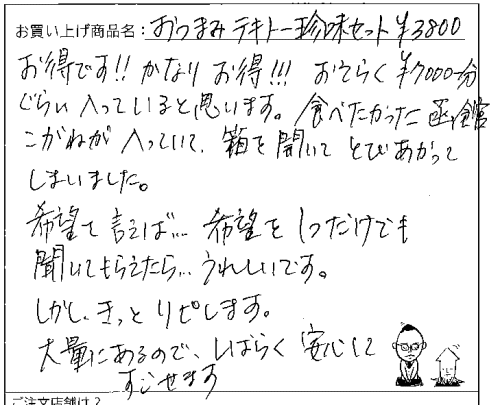 お買い上げ商品名：おつまみテキトー珍味セット ¥3800
お得です!! かなりお得!!! おそらく¥7000分
ぐらい入っていると思います。食べたかった函館
こがねが入っていて、箱を開いてとびあがって
しまいました。
希望を言えば… 希望を1つだけでも
聞いてもらえたら… うれしいです。
しかし、きっとリピします。
大量にあるので、しばらく安心して
すごせます
ご注文店舗は？